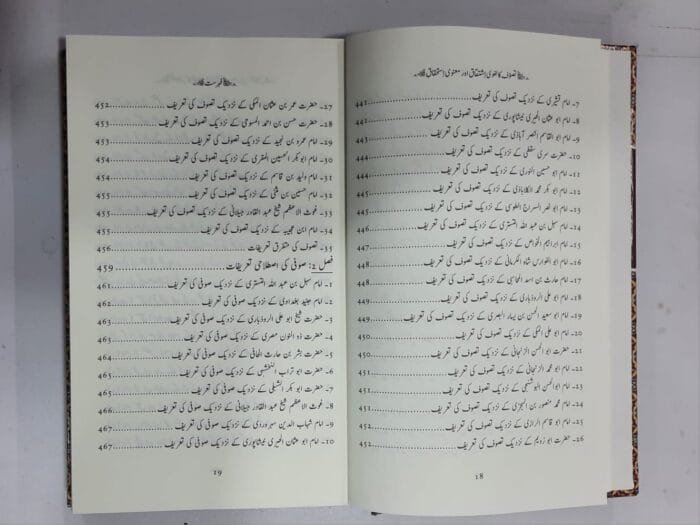 تصوف کا لغوی اشتقاق اور معنوی استحقاق
7- امام قشیری کے نزدیک تصوف کی تعریف 441
8- امام ابو عثمان الحیری نیشاپوری کے نزدیک تصوف کی تعریف 442
9- امام ابو القاسم النصر آباذی کے نزدیک تصوف کی تعریف 443
10- حضرت سری سقطی کے نزدیک تصوف کی تعریف 444
11- امام ابو حسین النوری کے نزدیک تصوف کی تعریف 444
12- امام ابو بکر محمد الکلاباذی کے نزدیک تصوف کی تعریف 445
13- امام ابو نصر السراج الطوسی کے نزدیک تصوف کی تعریف 445
14- امام سہل بن عبد اللہ التستری کے نزدیک تصوف کی تعریف 446
15- امام ابراہیم الخواص کے نزدیک تصوف کی تعریف 447
16- امام ابو الفوارس شاہ الکرمانی کے نزدیک تصوف کی تعریف 447
17- امام حارث بن اسد المحاسبی کے نزدیک تصوف کی تعریف 448
18- امام ابو علی الروذباری کے نزدیک تصوف کی تعریف 449
19- امام ابو سعید الحسن بن یسار البصری کے نزدیک تصوف کی تعریف 449
20- امام ابو علی المکی کے نزدیک تصوف کی تعریف 450
21- حضرت ابو الحسن الزنجانی کے نزدیک تصوف کی تعریف 450
22- امام ابو محمد الزنجانی کے نزدیک تصوف کی تعریف 451
23- امام ابو الحسن البوشنجی کے نزدیک تصوف کی تعریف 451
24- امام محمد منصور بن کے نزدیک تصوف کی تعریف 451
25- امام ابو قاسم الرازی کے نزدیک تصوف کی تعریف 451
26- حضرت ابو رویم کے نزدیک تصوف کی تعریف 452
18
فہرست
27- حضرت عمر بن عثمان المکی کے نزدیک تصوف کی تعریف 452
28- حضرت حسن بن احمد المسوحی کے نزدیک تصوف کی تعریف 453
29- امام عمرو بن نجید کے نزدیک تصوف کی تعریف 453
30- امام ابو بکر الحسین المقری کے نزدیک تصوف کی تعریف 454
31- امام ولید بن قاسم کے نزدیک تصوف کی تعریف 454
32- امام حسین بن کے نزدیک تصوف کی تعریف 455
33- غوث الاعظم شیخ عبد القادر جیلانی کے نزدیک تصوف کی تعریف 455
34- امام ابن عجیبہ کے نزدیک تصوف کی تعریف 455
35- تصوف کی متفرق تعریفات 456
فصل 2: صوفی کی اصطلاحی تعریفات 459
1- امام سہل بن عبد اللہ التستری کے نزدیک صوفی کی تعریف 461
2- امام جنید بغدادی کے نزدیک صوفی کی تعریف 462
3- حضرت شیخ ابو علی الروذباری کے نزدیک صوفی کی تعریف 463
4- حضرت ذو النون مصری کے نزدیک صوفی کی تعریف 463
5- حضرت بشر بن حارث الحافی کے نزدیک صوفی کی تعریف 464
6- حضرت ابو تراب النخشبی کے نزدیک صوفی کی تعریف 465
7- حضرت ابو بکر الشبلی کے نزدیک صوفی کی تعریف 465
8- غوث الاعظم شیخ عبد القادر جیلانی کے نزدیک صوفی کی تعریف 466
9- امام شہاب الدین سہروردی کے نزدیک صوفی کی تعریف 467
10- امام ابو عثمان الحیری نیشاپوری کے نزدیک صوفی کی تعریف 467
19